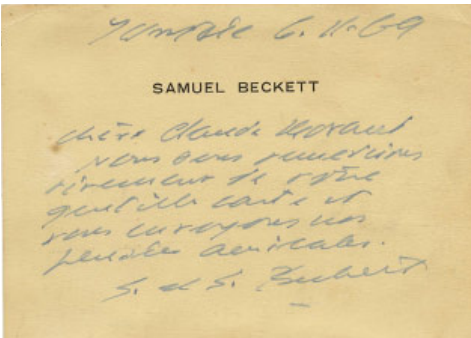 Tunisie 6.11.69
SAMUEL BECKETT
Chère Claude
nous vous remercions
vivement de votre
gentille carte et
vous envoyons nos
pensées amicales.
S. et S. Beckett